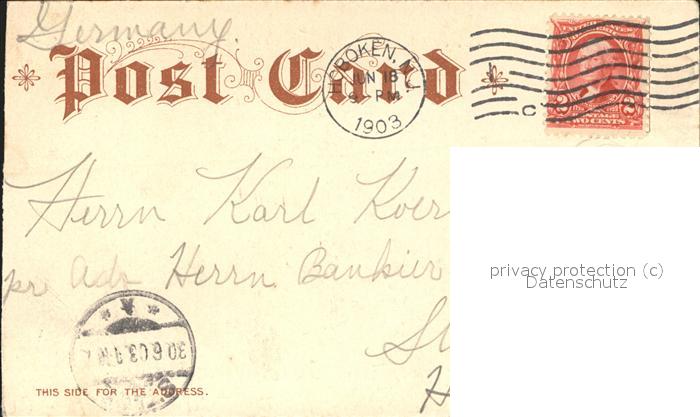 Germany.
Post Card
HOBOKEN, N.J.
JUN 18
PM
1903
C
UNITED STATES
2 2
POSTAGE
TWO CENTS
Herrn Karl
pr Adr Herrn Bankier
privacy protection (c)
Datenschutz
30.6.03.
THIS SIDE FOR THE ADDRESS.